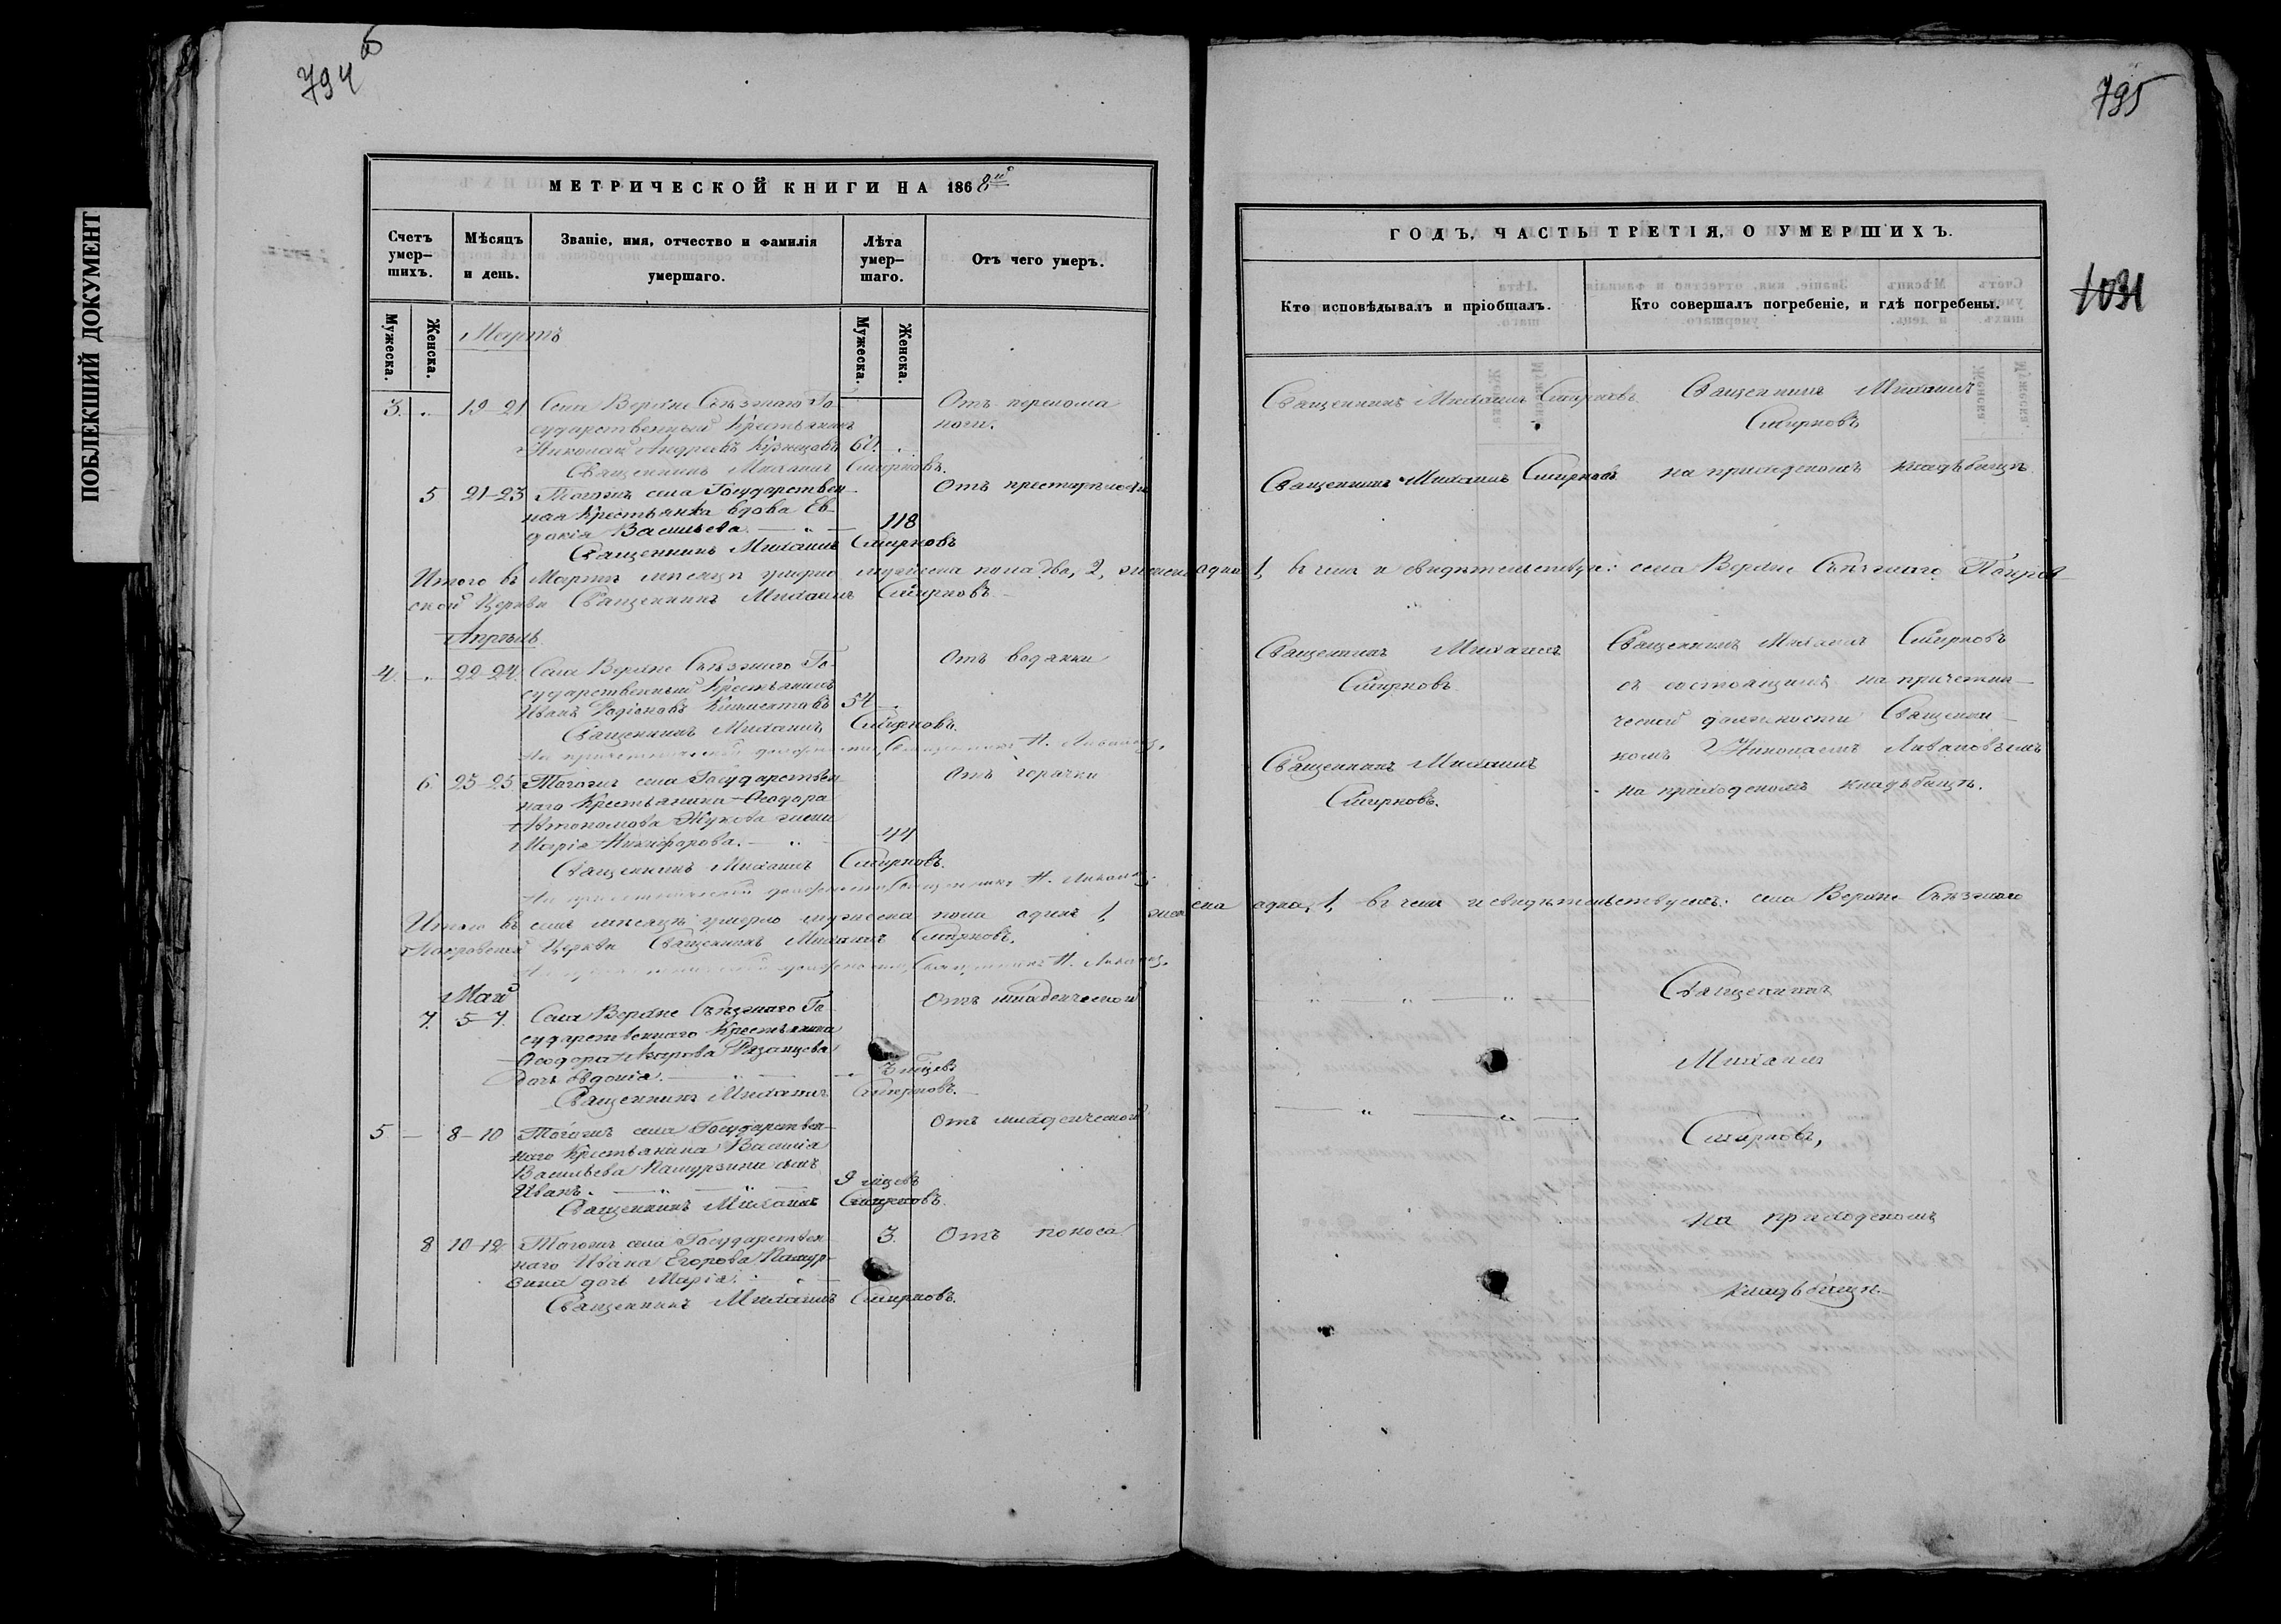 794 об
795
1031
ПОБЛЕКШИЙ ДОКУМЕНТ
МЕТРИЧЕСКОЙ КНИГИ НА 1868й
Счетъ умер-шихъ.
Мѣсяцъ и день.
Званіе, имя, отчество и фамилія умершаго.
Лѣта умер-шаго.
Отъ чего умеръ.
Мужеска.
Женска.
Мужеска.
Женска.
Мартъ
3. 19-21 Села Верхне Съѣзжаго Го-
сударственный Крестьянинъ
Николай Андреевъ Кузнецовъ
Священникъ Михаилъ Смирновъ.
Отъ перелома
ноги.
5 21-23 Тогожъ села Государствен-
ная Крестьянка вдова Ев-
докія Васильева. 118
Священникъ Михаилъ Смирновъ
Отъ престарѣлости
Итого въ Мартѣ мѣсяцѣ умерло мужеска пола два, 2, женска одна 1, въ чемъ и свидѣтельствую: села Верхне Съѣзжаго Покров-
ской Церкви Священникъ Михаилъ Смирновъ
Апрѣль
4. 22-24. Села Верхне Съѣзжаго Го-
сударственный Крестьянинъ
Иванъ Родіоновъ 54
Священникъ Михаилъ Смирновъ.
На причетнической должности Священникъ Н.
Отъ водянки
6. 23-25 Тогожъ села Государствен-
наго Крестьянина Ѳеодора
Автономова Жукова жена
Марія Никифорова. 44
Священникъ Михаилъ Смирновъ.
На причетнической должности Священникъ Н.
Отъ горячки
Итого въ семъ мѣсяцѣ умерло мужеска пола одинъ 1, женска одна, 1, въ чемъ и свидѣтельствуемъ: села Верхне Съѣзжаго
Покровской Церкви Священникъ Михаилъ Смирновъ.
На причетнической должности Священникъ Н.
Май
7. 5-7. Села Верхне Съѣзжаго Го-
сударственнаго Крестьянина
Ѳеодора Рязанцева
дочь Евдокія. 3 мѣсе
Священникъ Михаилъ Смирновъ.
Отъ младенческой
5 - 8-10 Тогожъ села Государствен-
наго Крестьянина Василія
Васильева сынъ
Иванъ. 9 мѣсе
Священникъ Михаилъ Смирновъ.
Отъ младенческой
8 10-12 Тогожъ села Государствен-
наго Ивана Егорова
дочь Марія. 3.
Священникъ Михаилъ Смирновъ.
Отъ поноса
ГОДЪ, ЧАСТЬ ТРЕТІЯ, О УМЕРШИХЪ.
Кто исповѣдывалъ и пріобщалъ.
Кто совершалъ погребеніе, и гдѣ погребены.
Священникъ Михаилъ Смирновъ
Священникъ Михаилъ
Смирновъ
Священникъ Михаилъ Смирновъ
на приходскомъ кладьбищѣ
Священникъ Михаилъ
Смирновъ
Священникъ Михаилъ Смирновъ
съ состоящимъ на причетни-
ческой должности Священни-
комъ Николаемъ Ливановымъ
Священникъ Михаилъ
Смирновъ.
на приходскомъ кладьбищѣ.
Священникъ
Михаилъ
Смирновъ,
на приходскомъ
кладьбищѣ.